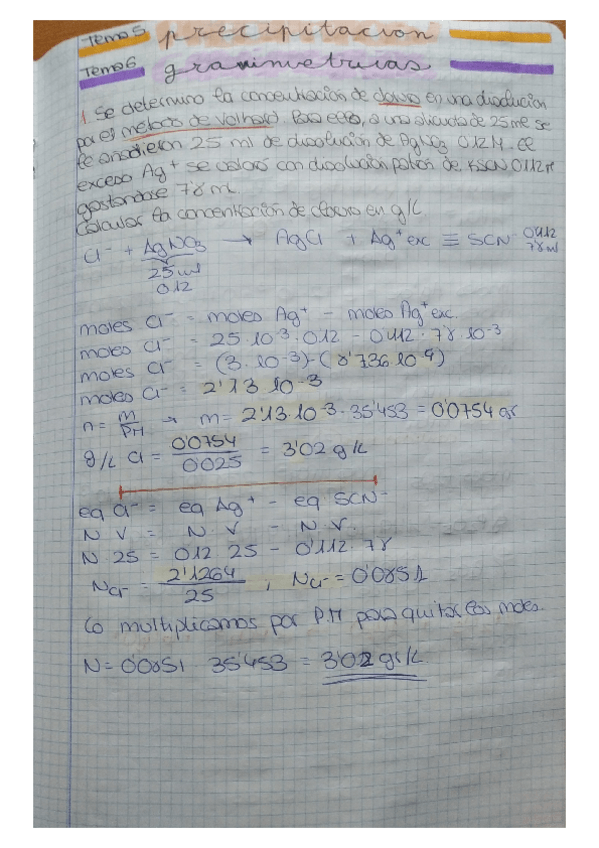 Tema 5 precipitación
Tema 6 gravimetricas
1. Se determino la concentración de cloruro en una disolución
por el método de Volhard. Para ello, a una alicuota de 25 ml se
le anadieron 25 ml de disolución de AgNO3 0.12 M. El
exceso Ag+ se valoró con disolución patrón de KSCN 0.112 M
gastandose 7'8 ml.
Calcular la concentración de cloruro en g/L
Cl- + AgNO3 → AgCl + Ag+ exc ≡ SCN- 0,112
7'8 ml
25 ml
0.12
moles Cl- = moles Ag+ - moles Ag+ exc.
moles Cl- = 25·10-3·0.12 - 0.112·7'8·10-3
moles Cl- = (3·10-3)-(8'736·10-4)
moles Cl- = 2'13·10-3
n = m/PM → m = 2'13·10-3·35'453 = 0'0754 gr
g/L Cl = 0'0754/0'025 = 3'02 g/L
eq Cl- = eq Ag+ - eq SCN-
N·V = N·V - N·V.
N·25 = 0.12·25 - 0'112·7'8
NCl- = 2'1264/25 , NCl- = 0'0851
multiplicamos por P.M para quitar los moles.
N = 0'0851 · 35'453 = 3'02 gr/L